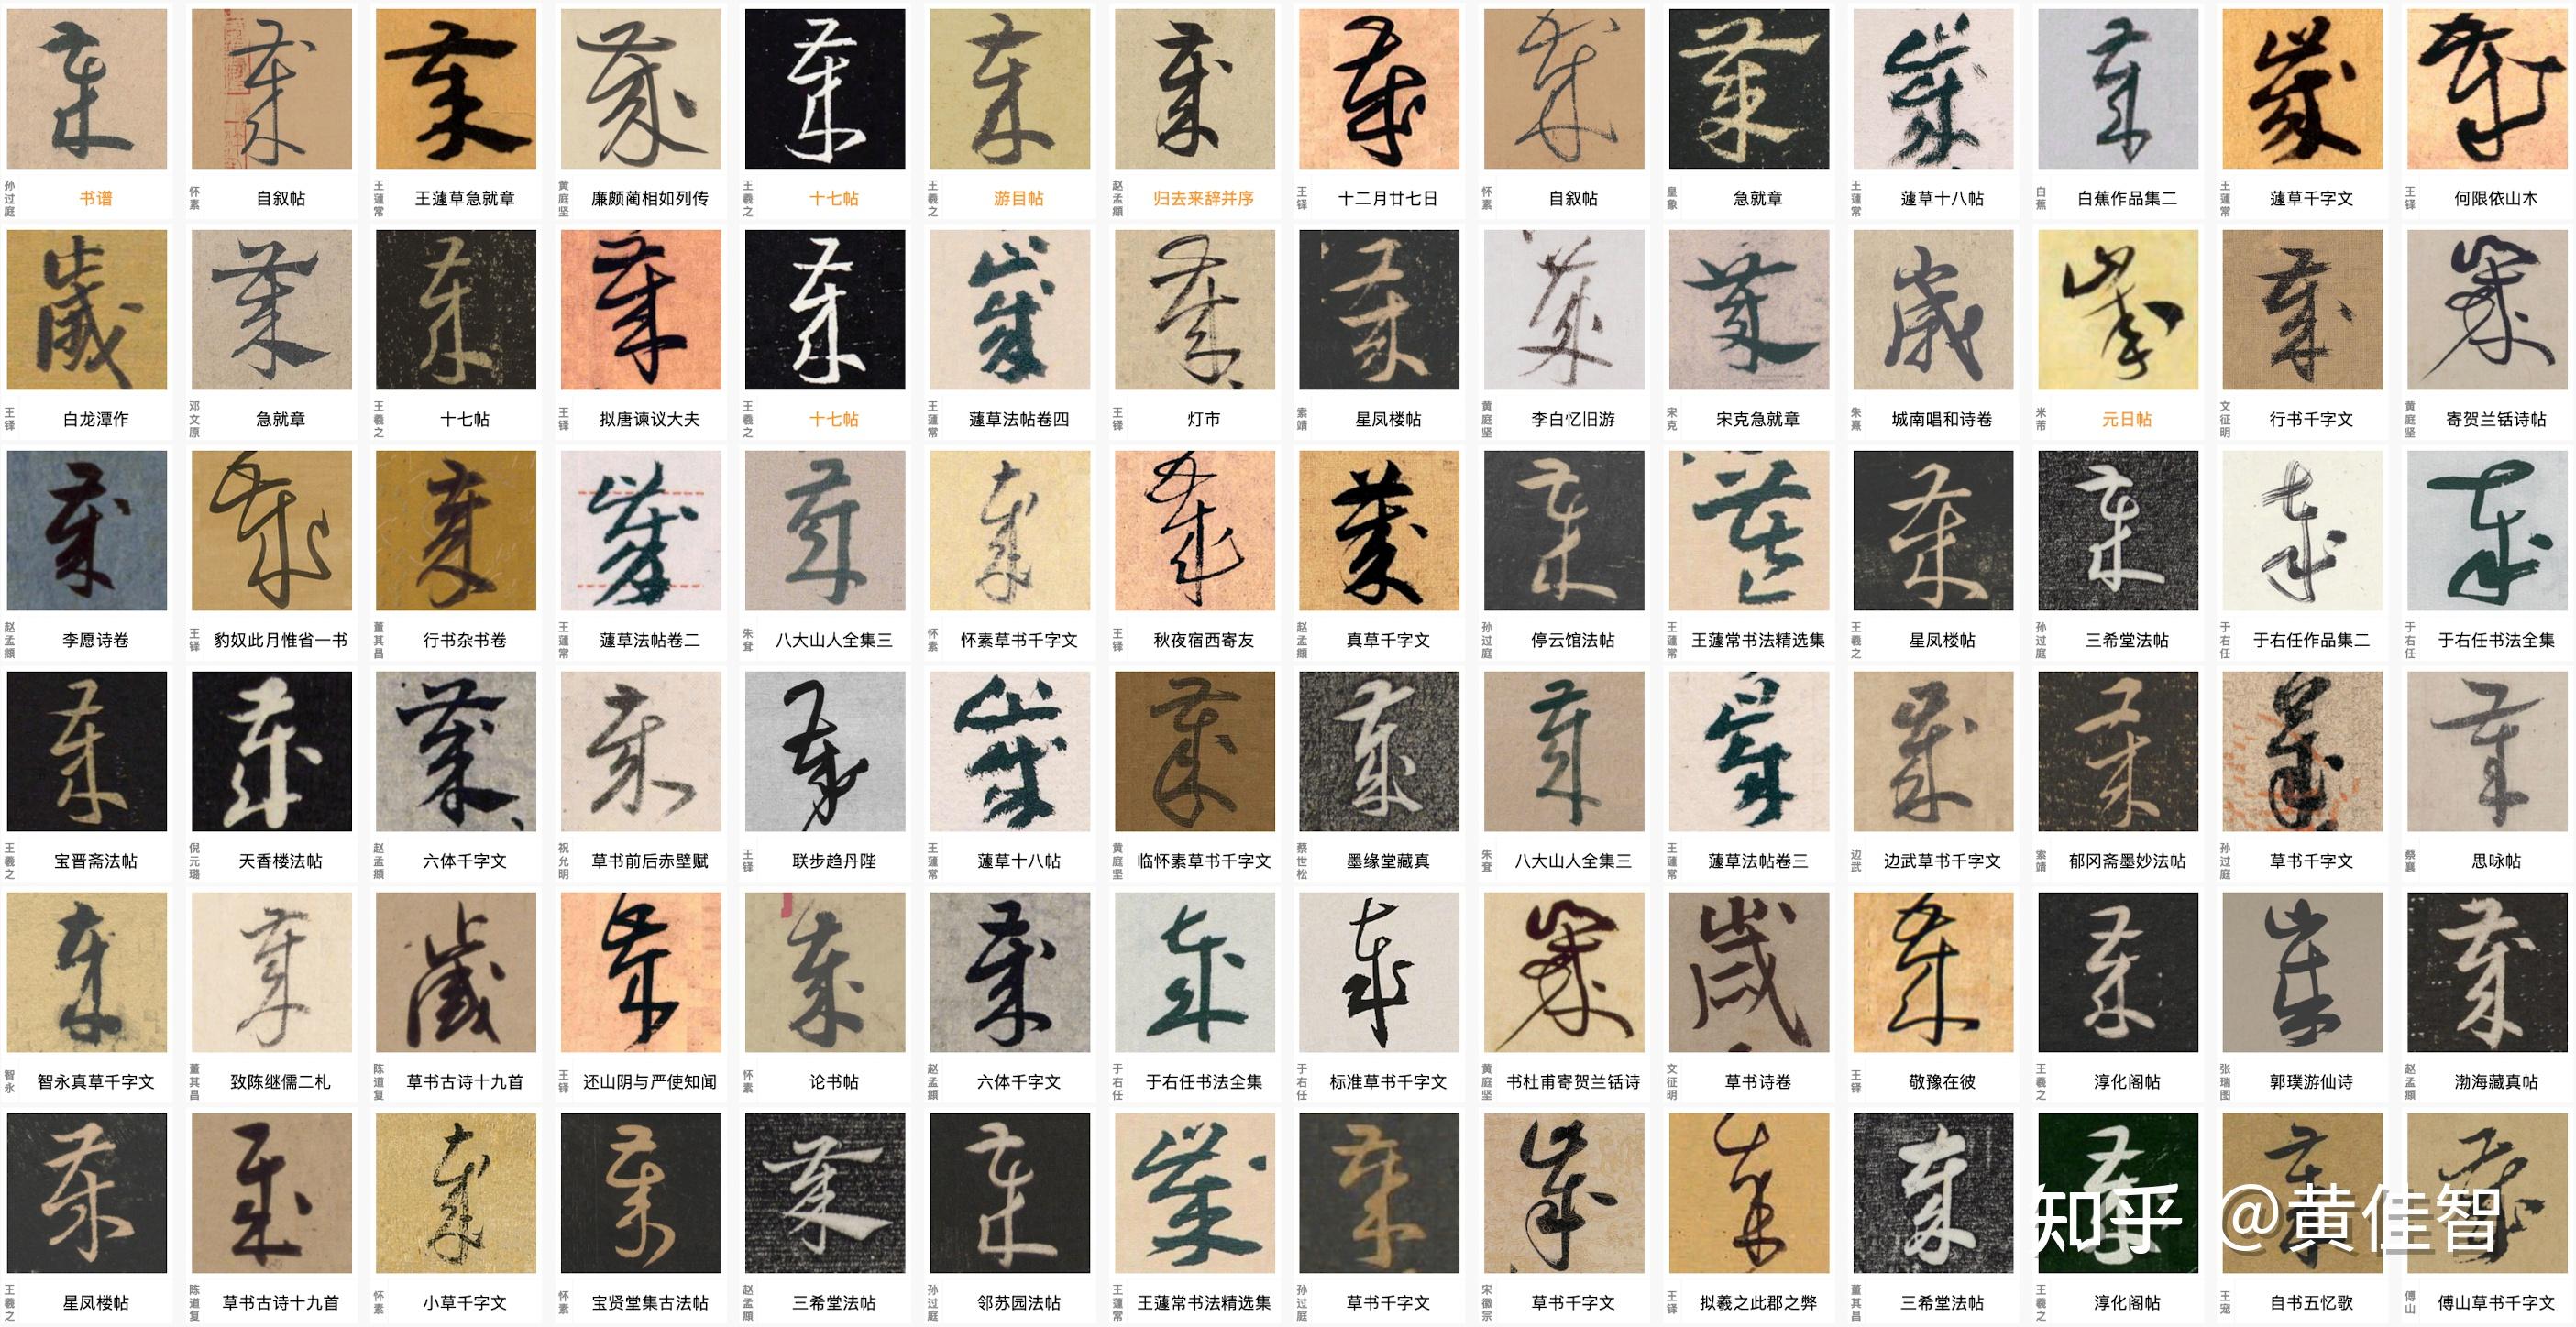 孙过庭 书谱
怀素 自叙帖
王蘧常 王蘧草急就章
黄庭坚 廉颇蔺相如列传
王羲之 十七帖
王羲之 游目帖
赵孟頫 归去来辞并序
王铎 十二月廿七日
怀素 自叙帖
皇象 急就章
王蘧常 蘧草十八帖
白蕉 白蕉作品集二
王蘧常 蘧草千字文
王铎 何限依山木
王铎 白龙潭作
邓文原 急就章
王羲之 十七帖
王铎 拟唐谏议大夫
王羲之 十七帖
王蘧常 蘧草法帖卷四
王铎 灯市
索靖 星凤楼帖
黄庭坚 李白忆旧游
宋克 宋克急就章
朱熹 城南唱和诗卷
米芾 元日帖
文征明 行书千字文
黄庭坚 寄贺兰铦诗帖
赵孟頫 李愿诗卷
王铎 豹奴此月惟省一书
董其昌 行书杂书卷
王蘧常 蘧草法帖卷二
朱耷 八大山人全集三
怀素 怀素草书千字文
王铎 秋夜宿西寄友
赵孟頫 真草千字文
孙过庭 停云馆法帖
王蘧常 王蘧常书法精选集
王羲之 星凤楼帖
孙过庭 三希堂法帖
于右任 于右任作品集二
于右任 于右任书法全集
王羲之 宝晋斋法帖
倪元璐 天香楼法帖
赵孟頫 六体千字文
祝允明 草书前后赤壁赋
王铎 联步趋丹陛
王蘧常 蘧草十八帖
黄庭坚 临怀素草书千字文
蔡世松 墨缘堂藏真
朱耷 八大山人全集三
王蘧常 蘧草法帖卷三
边武 边武草书千字文
索靖 郁冈斋墨妙法帖
孙过庭 草书千字文
蔡襄 思咏帖
智永 智永真草千字文
董其昌 致陈继儒二札
陈道复 草书古诗十九首
王铎 还山阴与严使知闻
怀素 论书帖
赵孟頫 六体千字文
于右任 于右任书法全集
于右任 标准草书千字文
黄庭坚 书杜甫寄贺兰铦诗
文征明 草书诗卷
王铎 敬豫在彼
王羲之 淳化阁帖
张瑞图 郭璞游仙诗
赵孟頫 渤海藏真帖
王羲之 星凤楼帖
陈道复 草书古诗十九首
怀素 小草千字文
怀素 宝贤堂集古法帖
赵孟頫 三希堂法帖
孙过庭 邻苏园法帖
王蘧常 王蘧常书法精选集
孙过庭 草书千字文
宋徽宗 草书千字文
王铎 拟羲之此郡之弊
董其昌 三希堂法帖
王羲之 淳化阁帖
王宠 自书五忆歌
傅山 傅山草书千字文
知乎 @黄佳智